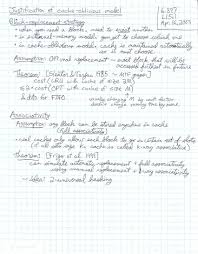 Justification of cache-oblivious model
6.897
L15.1
Apr. 16, 2003
① Block-replacement strategy
- when you read a block, need to evict another
- in external-memory model, you get to choose which one
- in cache-oblivious model, cache is maintained automatically
is not choose
Assumption: OPTimal replacement - evict block that will be
accessed farthest in future
Theorem: [Sleator & Tarjan 1985
cost(LRU with cache of size M)
≤ 2 × cost(OPT with cache of size M/2)
& ditto for FIFO
changing M by const. factor
Associativity
Assumption: any block can be stored anywhere in cache
(full associativity)
- real caches only allow each block to go in certain set of slots
(if all sets size k, cache is called k-way associative)
Theorem: [Frigo et al. 1999]
can simulate automatic replacement + full associativity
using manual replacement + 1-way associativity
- idea: 2-universal hashing